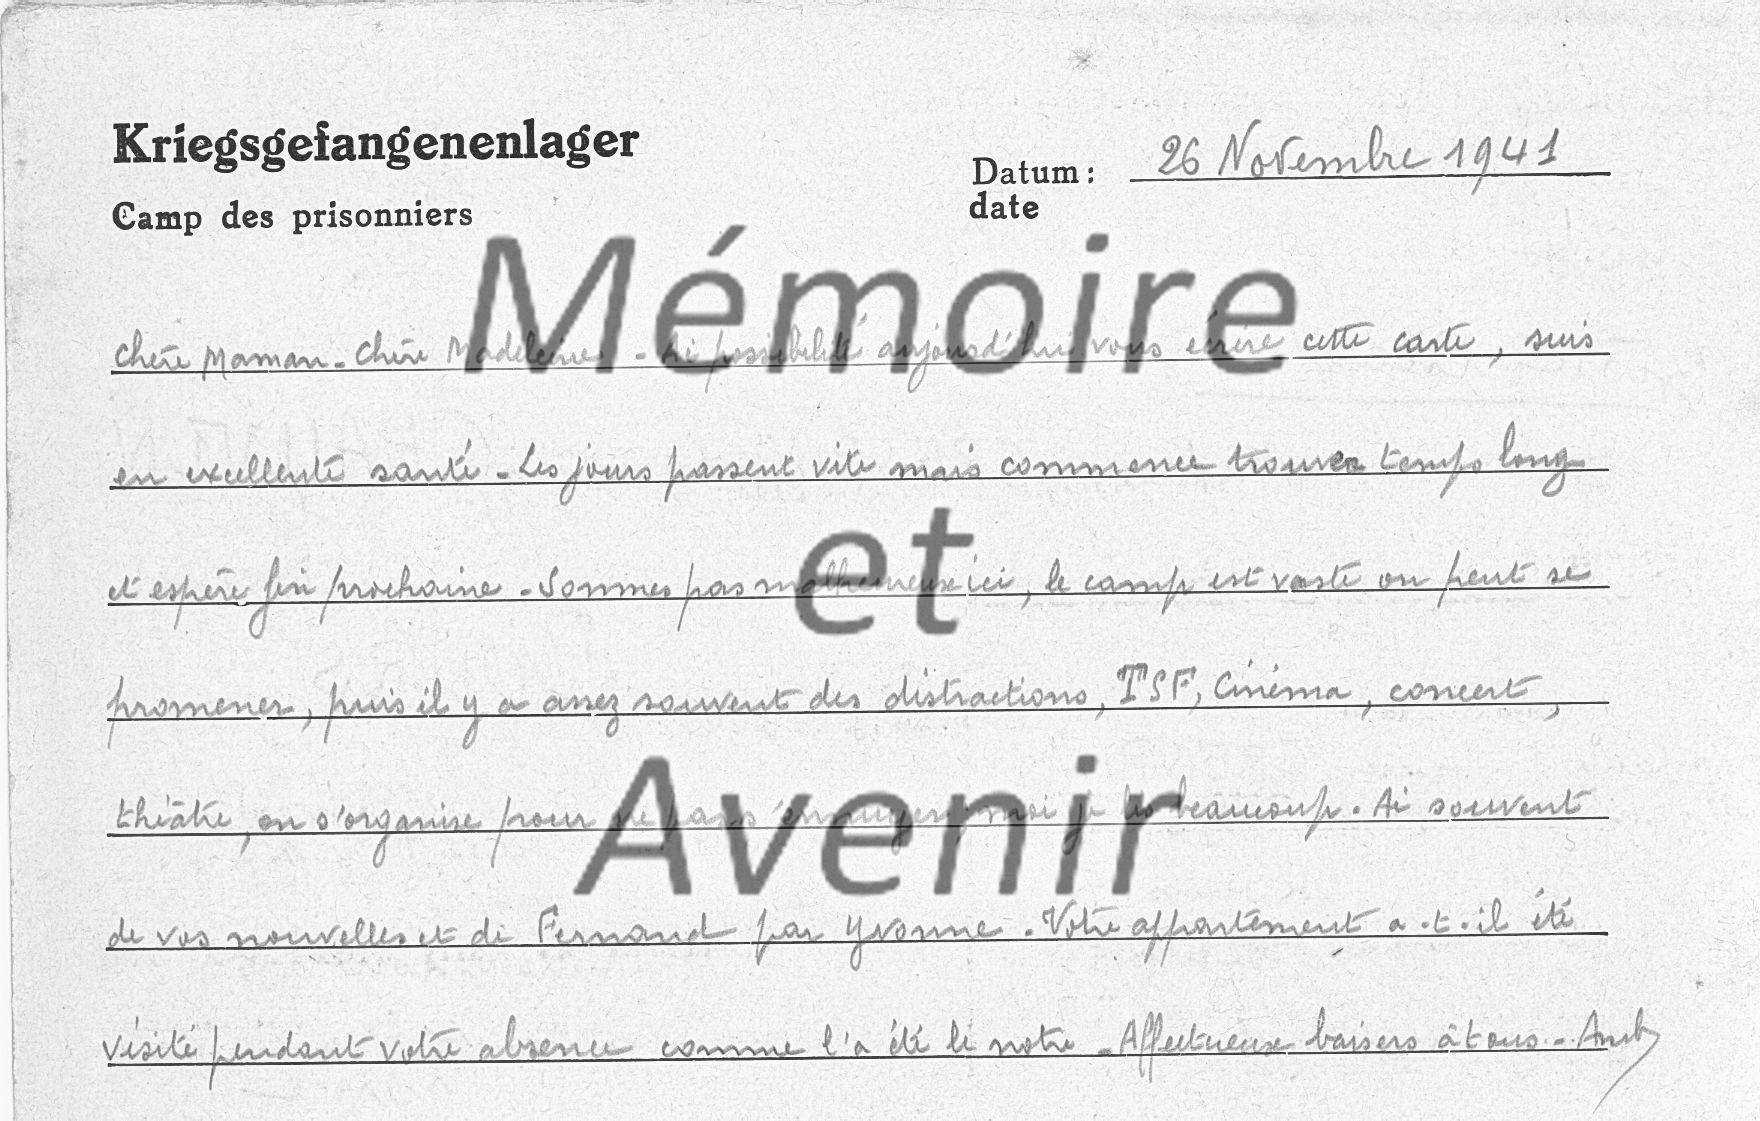 Kriegsgefangenenlager
Camp des prisonniers
Datum: 26 Novembre 1941
date
Mémoire
et
Avenir
Chère Maman - Chère Madeleine - Ai possibilité aujourd'hui vous écrire cette carte, suis
en excellente santé - Les jours passent vite mais commence trouver temps long
et espère fin prochaine - Sommes pas malheureux ici, le camp est vaste on peut se
promener, puis il y a assez souvent des distractions, TSF, Cinéma, concert,
théâtre, on s'organise pour ne pas s'ennuyer, moi je lis beaucoup. Ai souvent
de vos nouvelles et de Fernand par Yvonne. Votre appartement a-t-il été
visité pendant votre absence comme l'a été le notre - Affectueux baisers à tous -